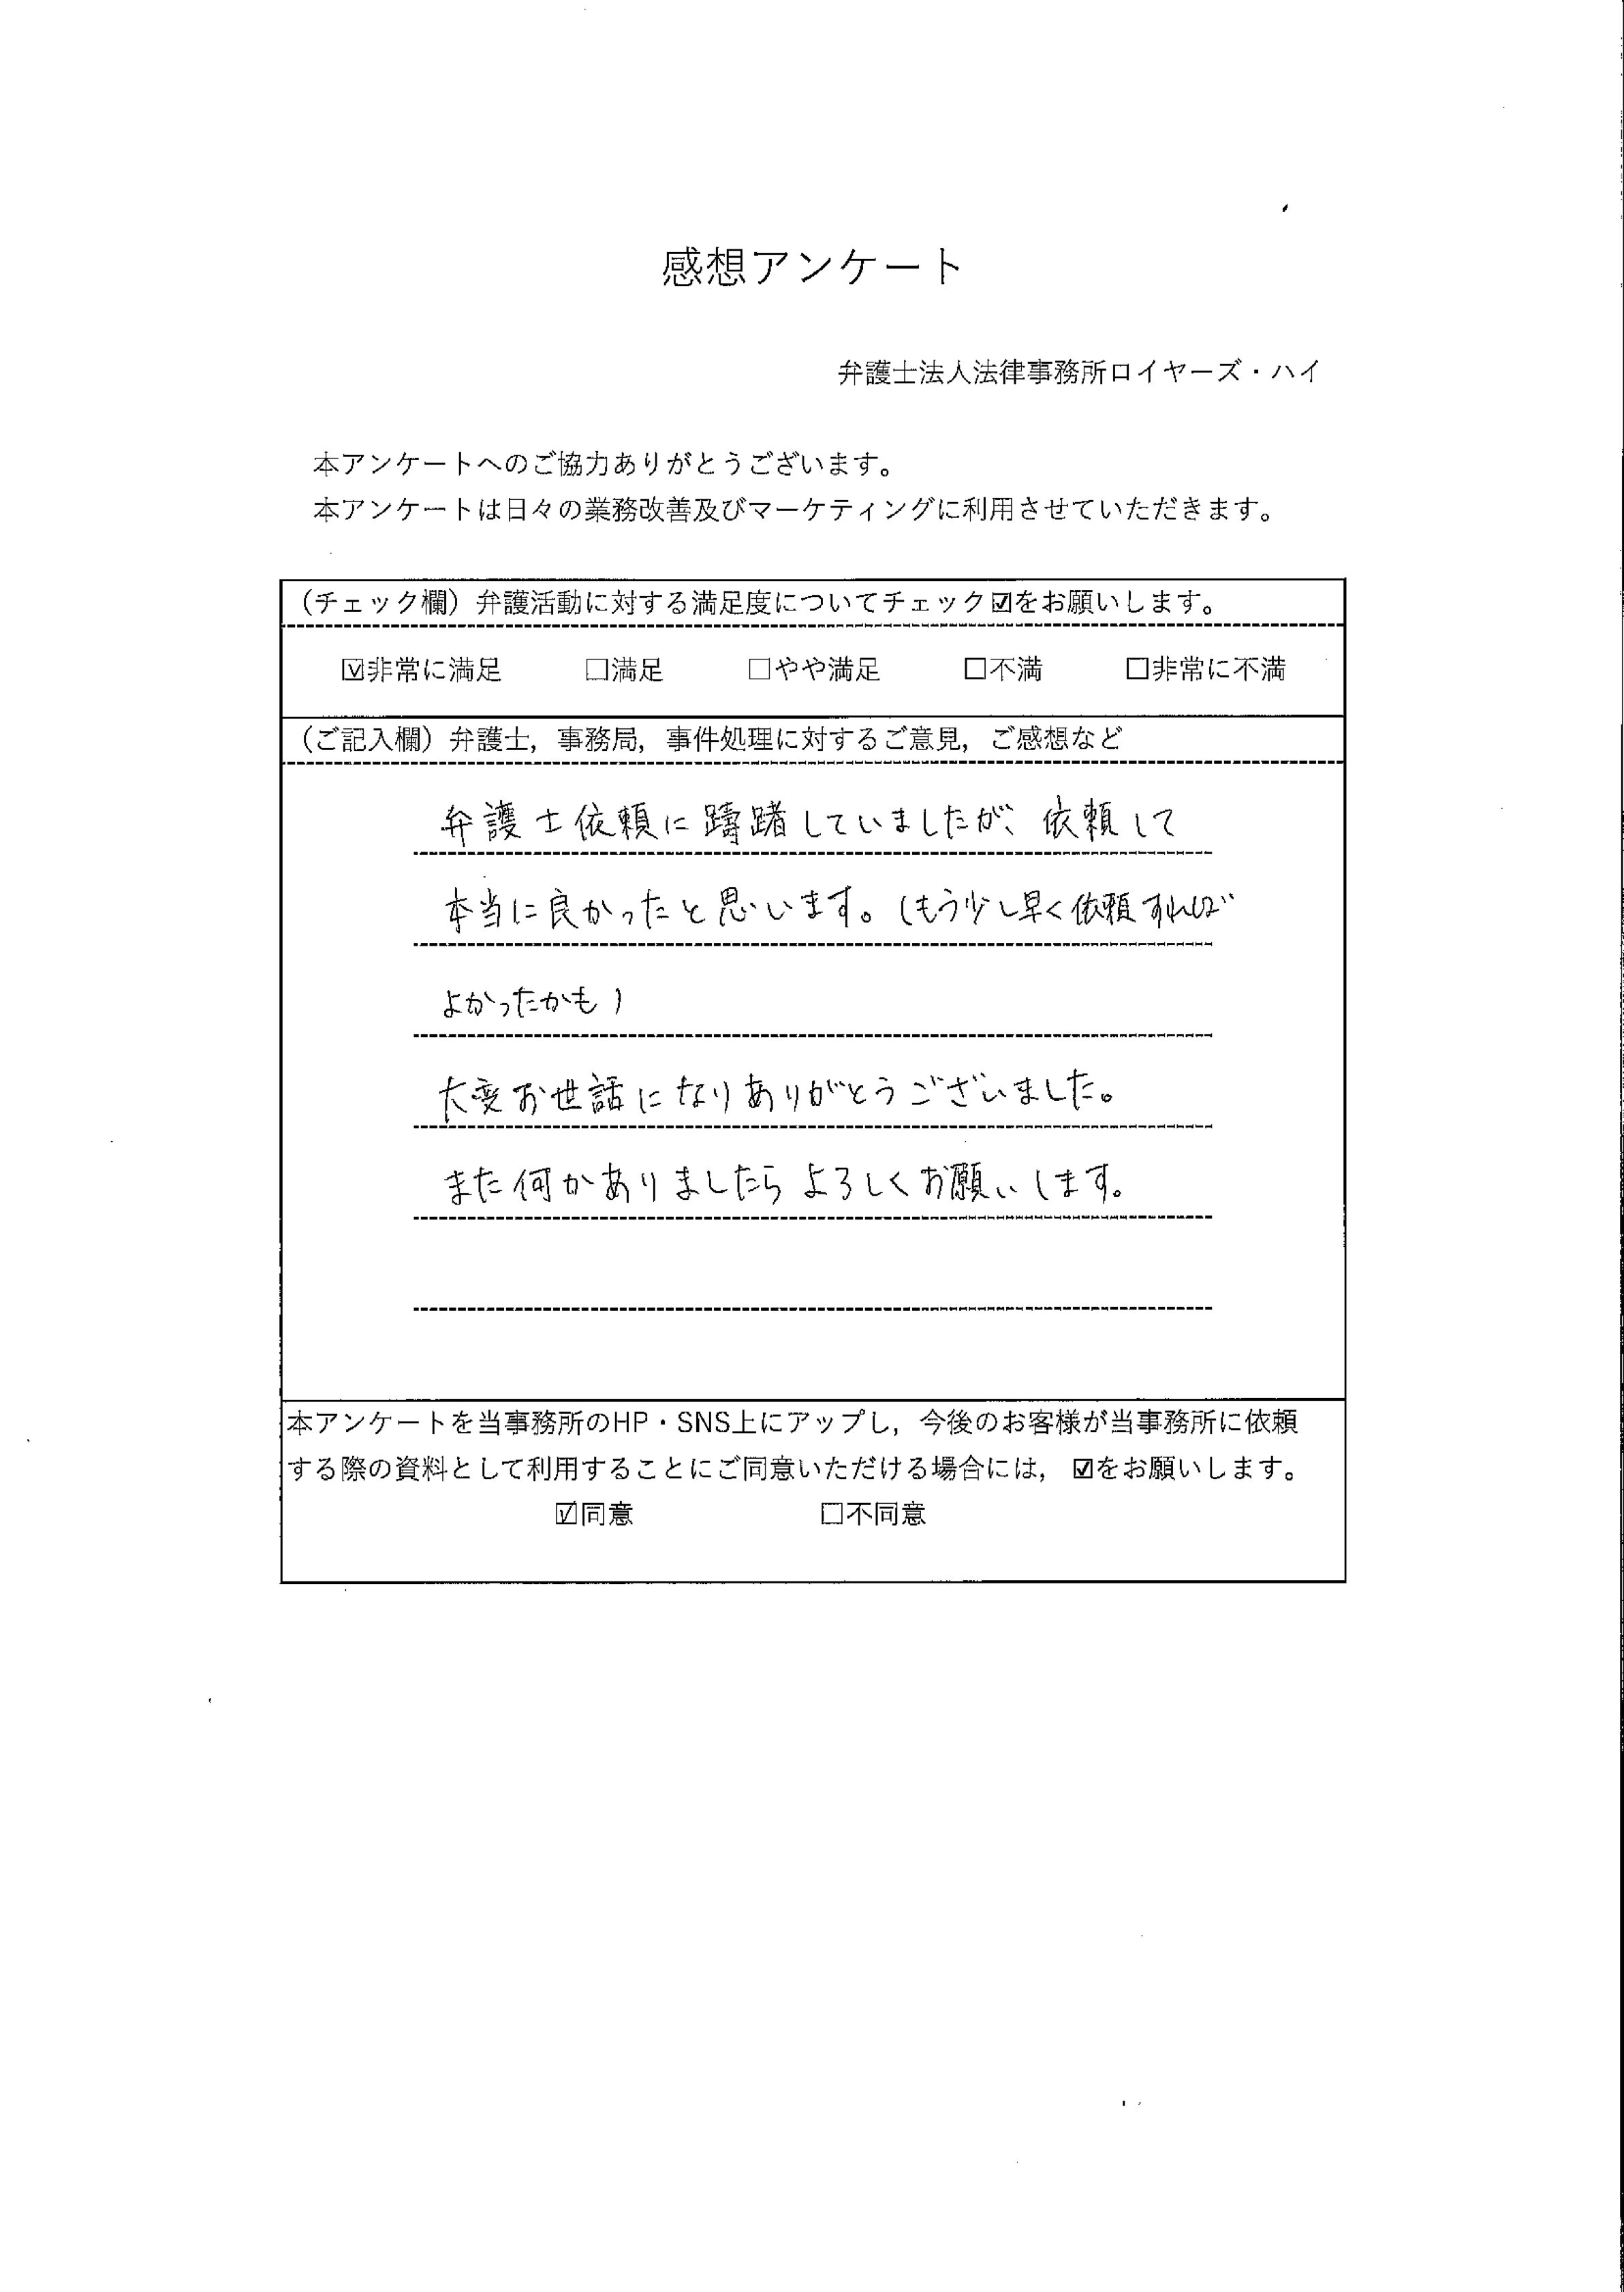 感想アンケート
弁護士法人法律事務所ロイヤーズ・ハイ
本アンケートへのご協力ありがとうございます。
本アンケートは日々の業務改善及びマーケティングに利用させていただきます。
（チェック欄）弁護活動に対する満足度についてチェック☑をお願いします。
☑非常に満足 □満足 □やや満足 □不満 □非常に不満
（ご記入欄）弁護士，事務局，事件処理に対するご意見，ご感想など
弁護士依頼に躊躇していましたが、依頼して
本当に良かったと思います。（もう少し早く依頼すれば
よかったかも）
大変お世話になりありがとうございました。
また何かありましたらよろしくお願いします。
本アンケートを当事務所のHP・SNS上にアップし，今後のお客様が当事務所に依頼
する際の資料として利用することにご同意いただける場合には，☑をお願いします。
☑同意 □不同意